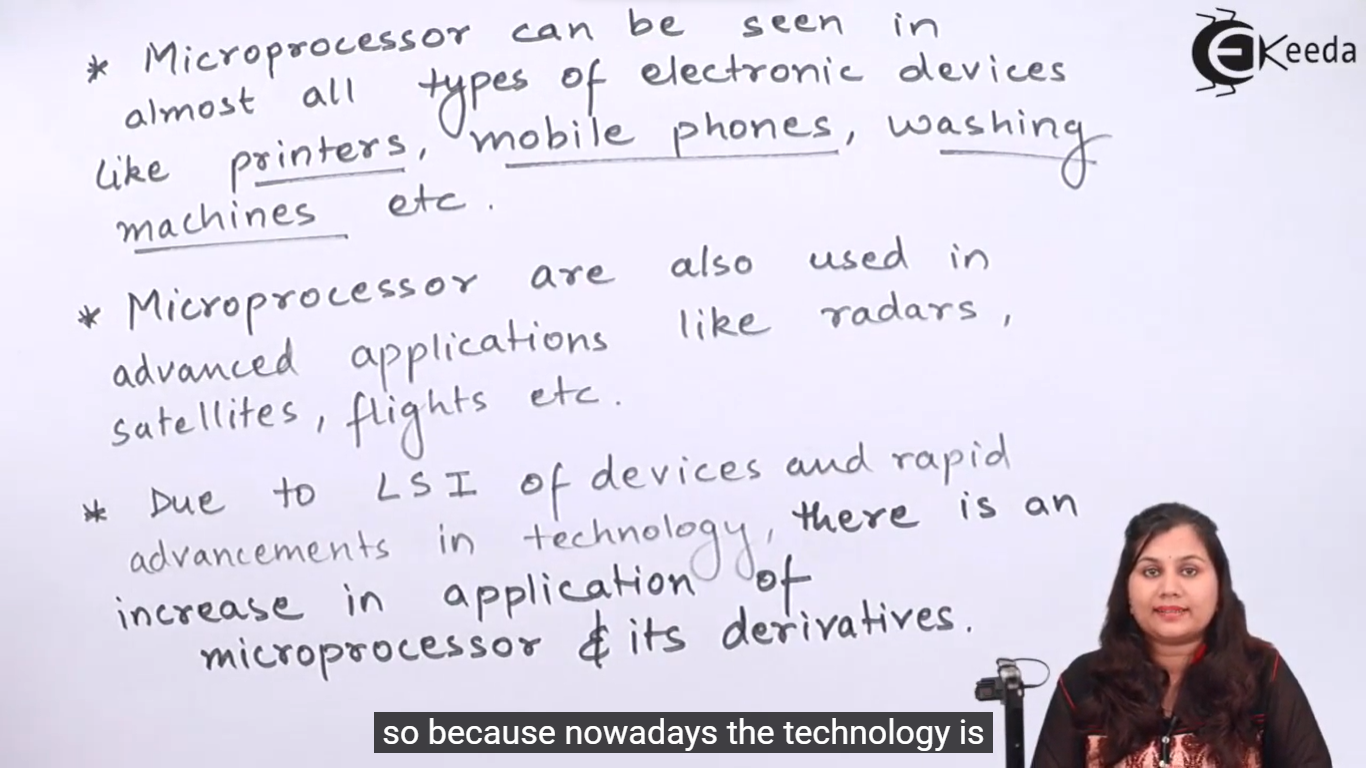 * Microprocessor can be seen in
almost all types of electronic devices
like printers, mobile phones, washing
machines etc.
* Microprocessor are also used in
advanced applications like radars,
satellites, flights etc.
* Due to LSI of devices and rapid
advancements in technology, there is an
increase in application of
microprocessor & its derivatives.
EKeeda
so because nowadays the technology is